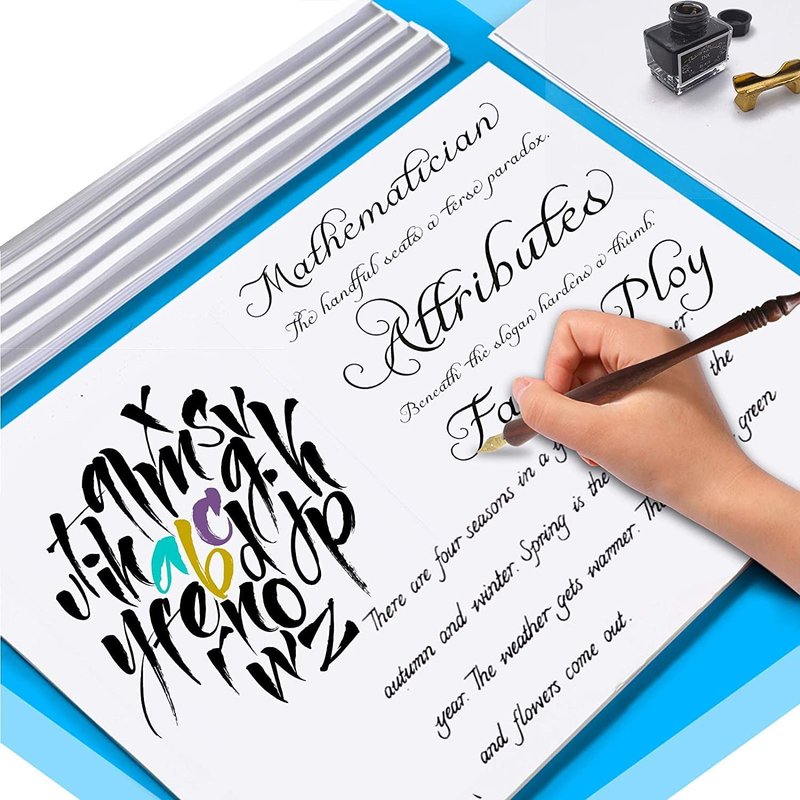 Mathematician
The handful seats a terse paradox.
Attributes
Beneath the slogan hardens a thumb.
Ploy
Fa
There are four seasons in a mer.
autumn and winter. Spring is the the
year. The weather gets warmer. green
and flowers come out.
x s v
q l m g h
t i k a b c d j p
y f e n o
r w z
INK